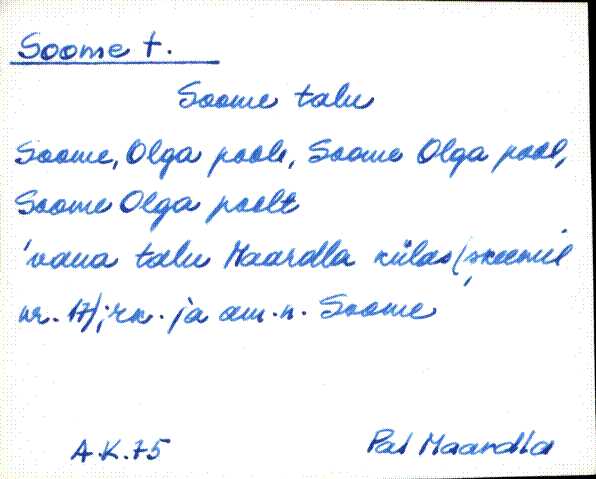 Soome t.
Soome talu
Soome, Olga poole, Soome Olga pool,
Soome Olga poolt
'vana talu Maardla külas (skeemil
nr. 17); rk. ja am. n. Soome
A.K. 75 Pal Maardla